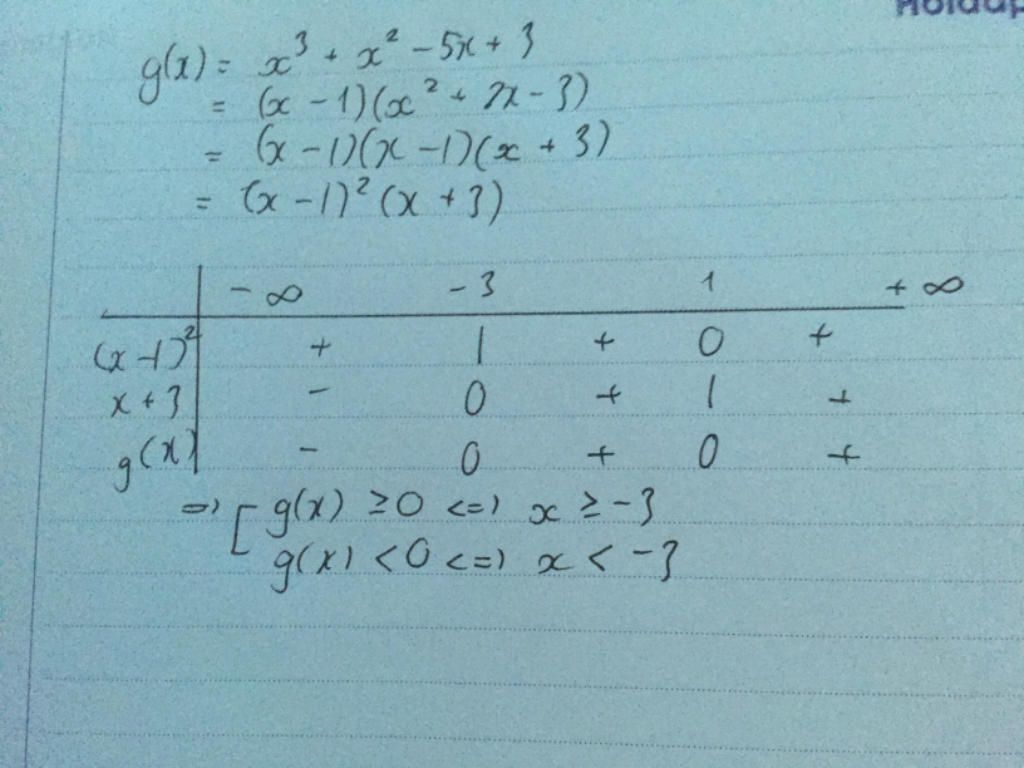 g(x) = x³ + x² - 5x + 3
= (x - 1)(x² + 2x - 3)
= (x - 1)(x - 1)(x + 3)
= (x - 1)² (x + 3)
-∞ -3 1 +∞
(x - 1)² + | + 0 +
x + 3 - 0 + | +
g(x) - 0 + 0 +
=> [ g(x) ≥ 0 <=> x ≥ -3
g(x) < 0 <=> x < -3